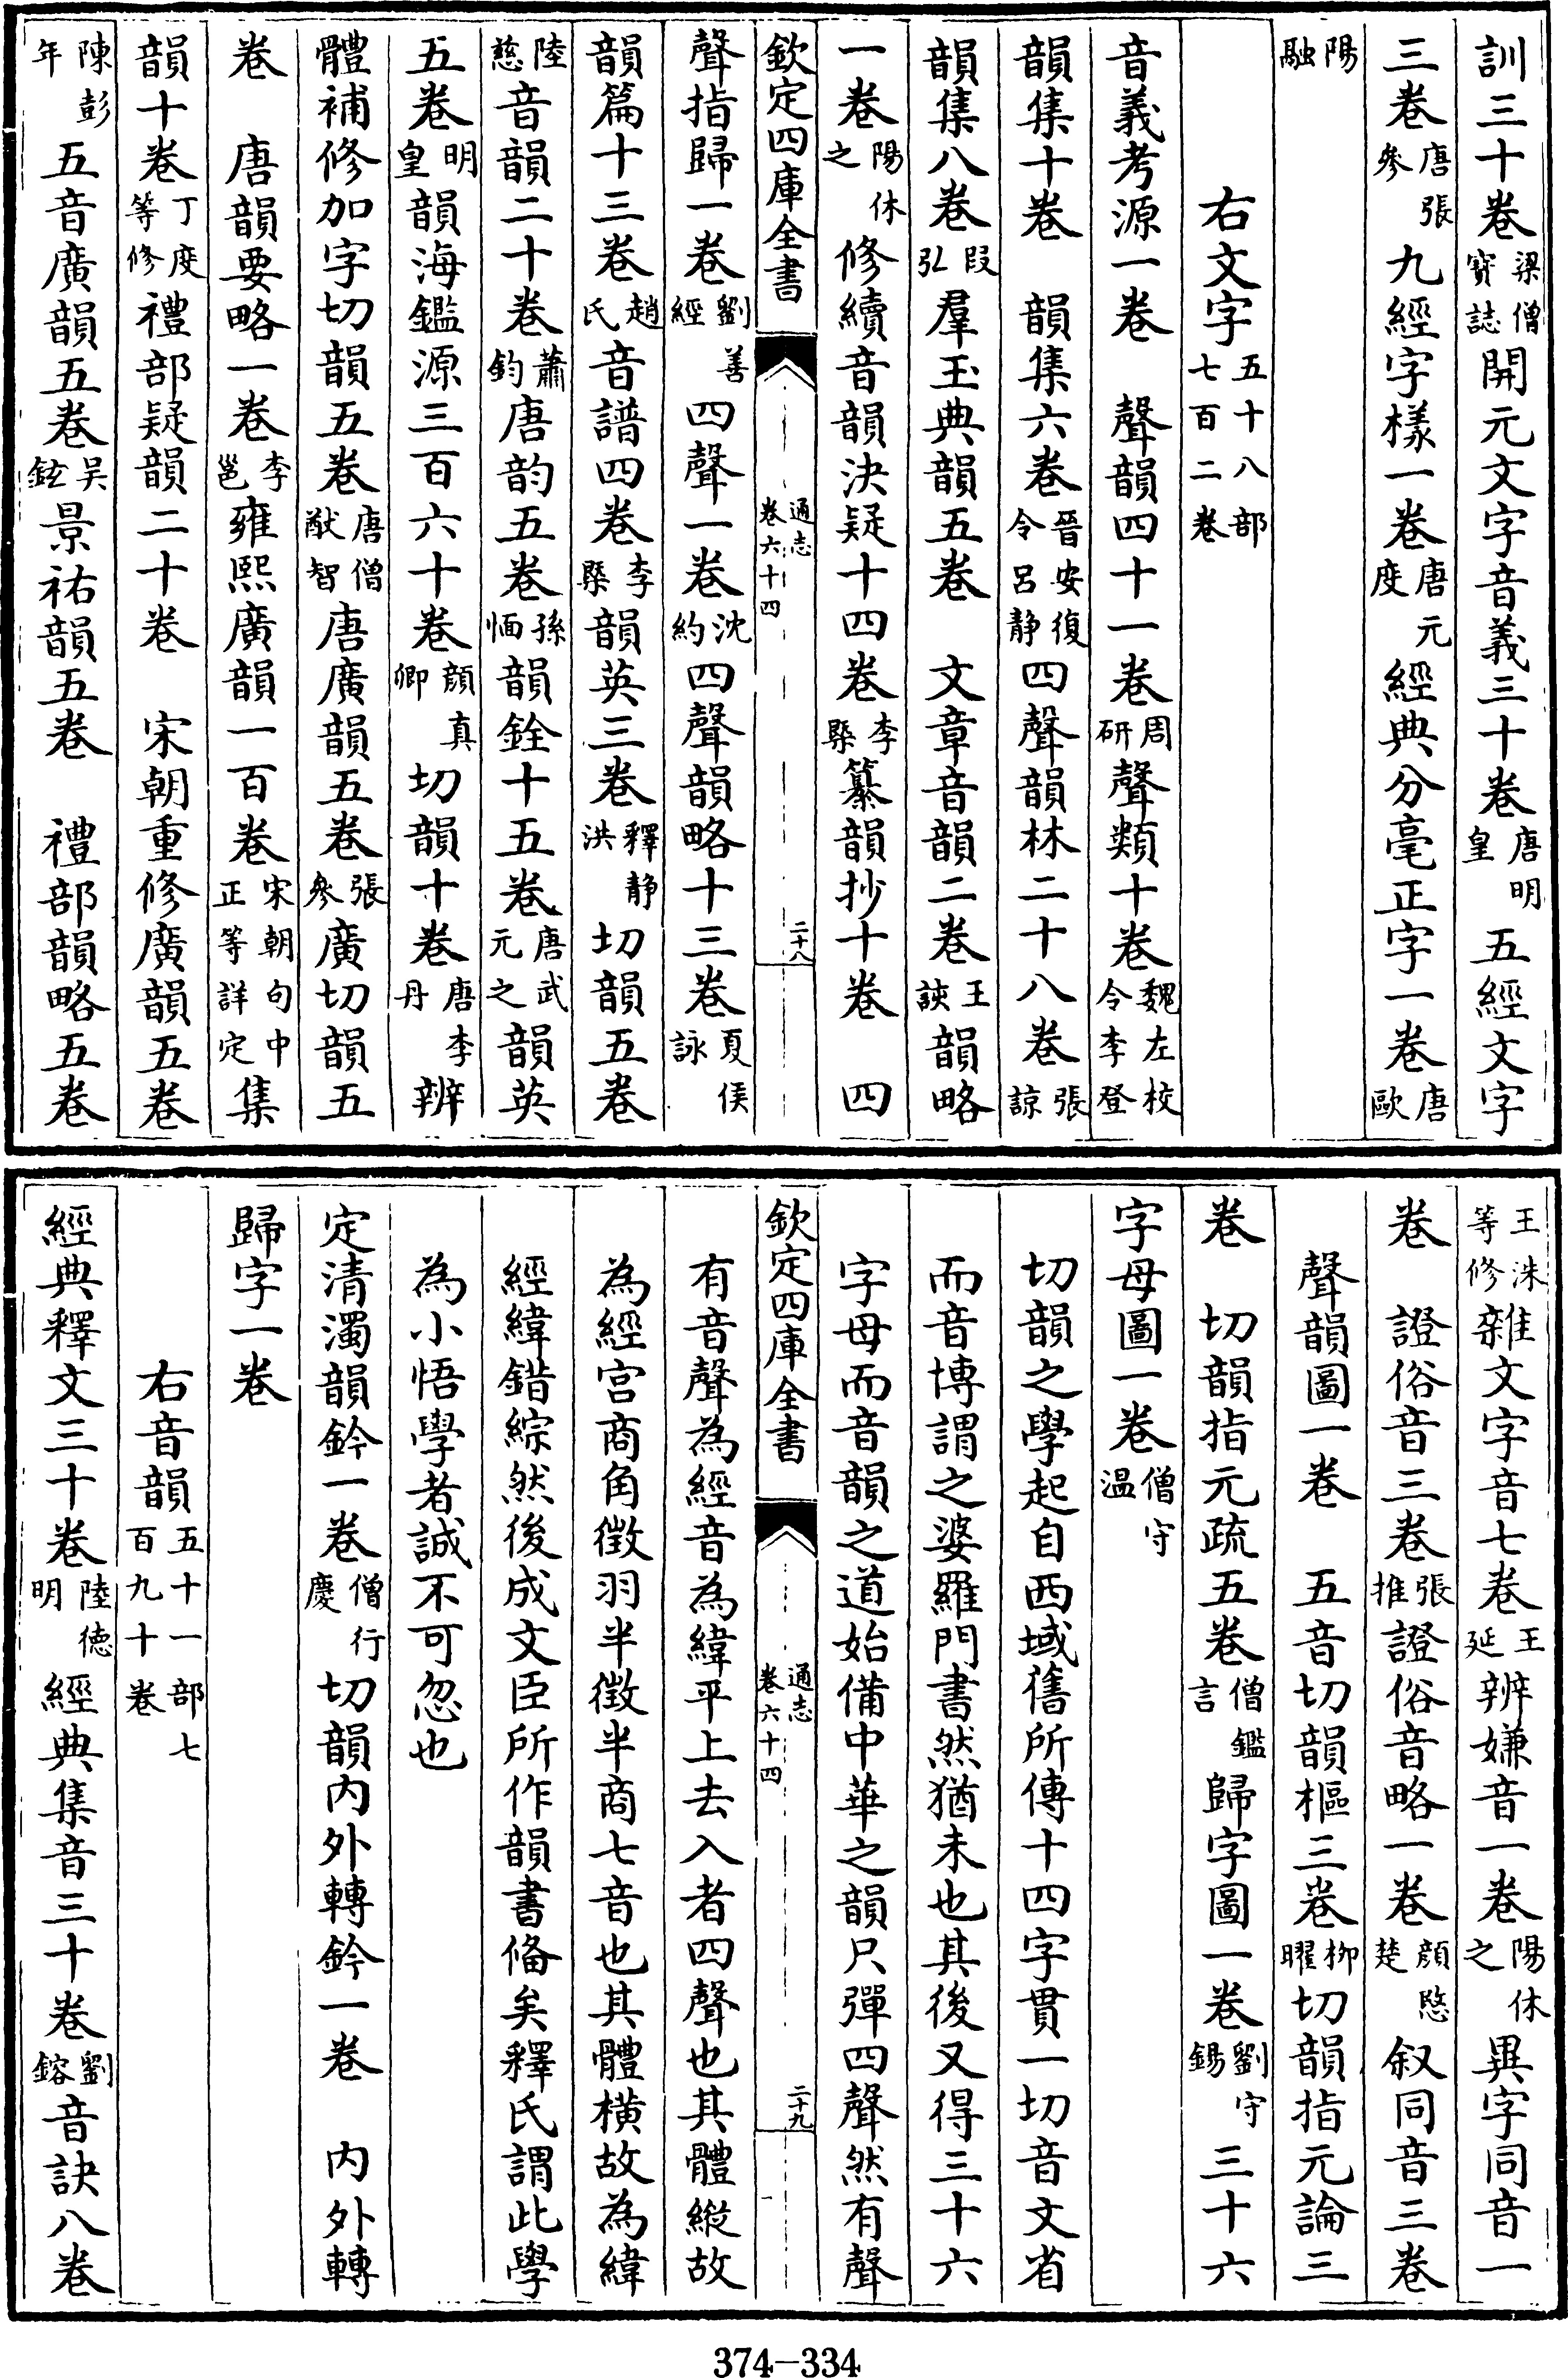 訓三十卷梁僧寶誌開元文字音義三十卷唐明皇五經文字
三卷唐張參九經字樣一卷唐元度經典分毫正字一卷唐歐
陽融
右文字五十八部七百二卷
音義考源一卷 聲韻四十一卷周研聲類十卷魏左校令李登
韻集十卷 韻集六卷晉安復令呂静四聲韻林二十八卷張諒
韻集八卷段弘羣玉典韻五卷 文章音韻二卷王該韻略
一卷陽休之修續音韻決疑十四卷李槩纂韻抄十卷 四
欽定四庫全書 通志卷六十四 二十八
聲指歸一卷劉善經四聲一卷沈約四聲韻略十三卷夏侯詠
韻篇十三卷趙氏音譜四卷李槩韻英三卷釋静洪切韻五卷
陸慈音韻二十卷蕭鈞唐韵五卷孫愐韻銓十五卷唐武元之韻英
五卷明皇韻海鑑源三百六十卷顔真卿切韻十卷唐李丹辨
體補修加字切韻五卷唐僧猷智唐廣韻五卷張參廣切韻五
卷 唐韻要略一卷李邕雍熙廣韻一百卷宋朝句中正等詳定集
韻十卷丁度等修禮部疑韻二十卷 宋朝重修廣韻五卷
陳彭年五音廣韻五卷吴鉉景祐韻五卷 禮部韻略五卷
王洙等修雜文字音七卷王延辨嫌音一卷陽休之異字同音一
卷 證俗音三卷張推證俗音略一卷顔愍楚叙同音三卷
聲韻圖一卷 五音切韻樞三卷柳曜切韻指元論三
卷 切韻指元疏五卷僧鑑言歸字圖一卷劉守錫三十六
字母圖一卷僧守温
切韻之學起自西域舊所傳十四字貫一切音文省
而音博謂之婆羅門書然猶未也其後又得三十六
字母而音韻之道始備中華之韻只彈四聲然有聲
欽定四庫全書 通志卷六十四 二十九
有音聲為經音為緯平上去入者四聲也其體縱故
為經宫商角徵羽半徵半商七音也其體横故為緯
經緯錯綜然後成文臣所作韻書俻矣釋氏謂此學
為小悟學者誠不可忽也
定清濁韻鈐一卷僧行慶切韻内外轉鈐一卷 内外轉
歸字一卷
右音韻五十一部七百九十卷
經典釋文三十卷陸德明經典集音三十卷劉鎔音訣八卷
374-334